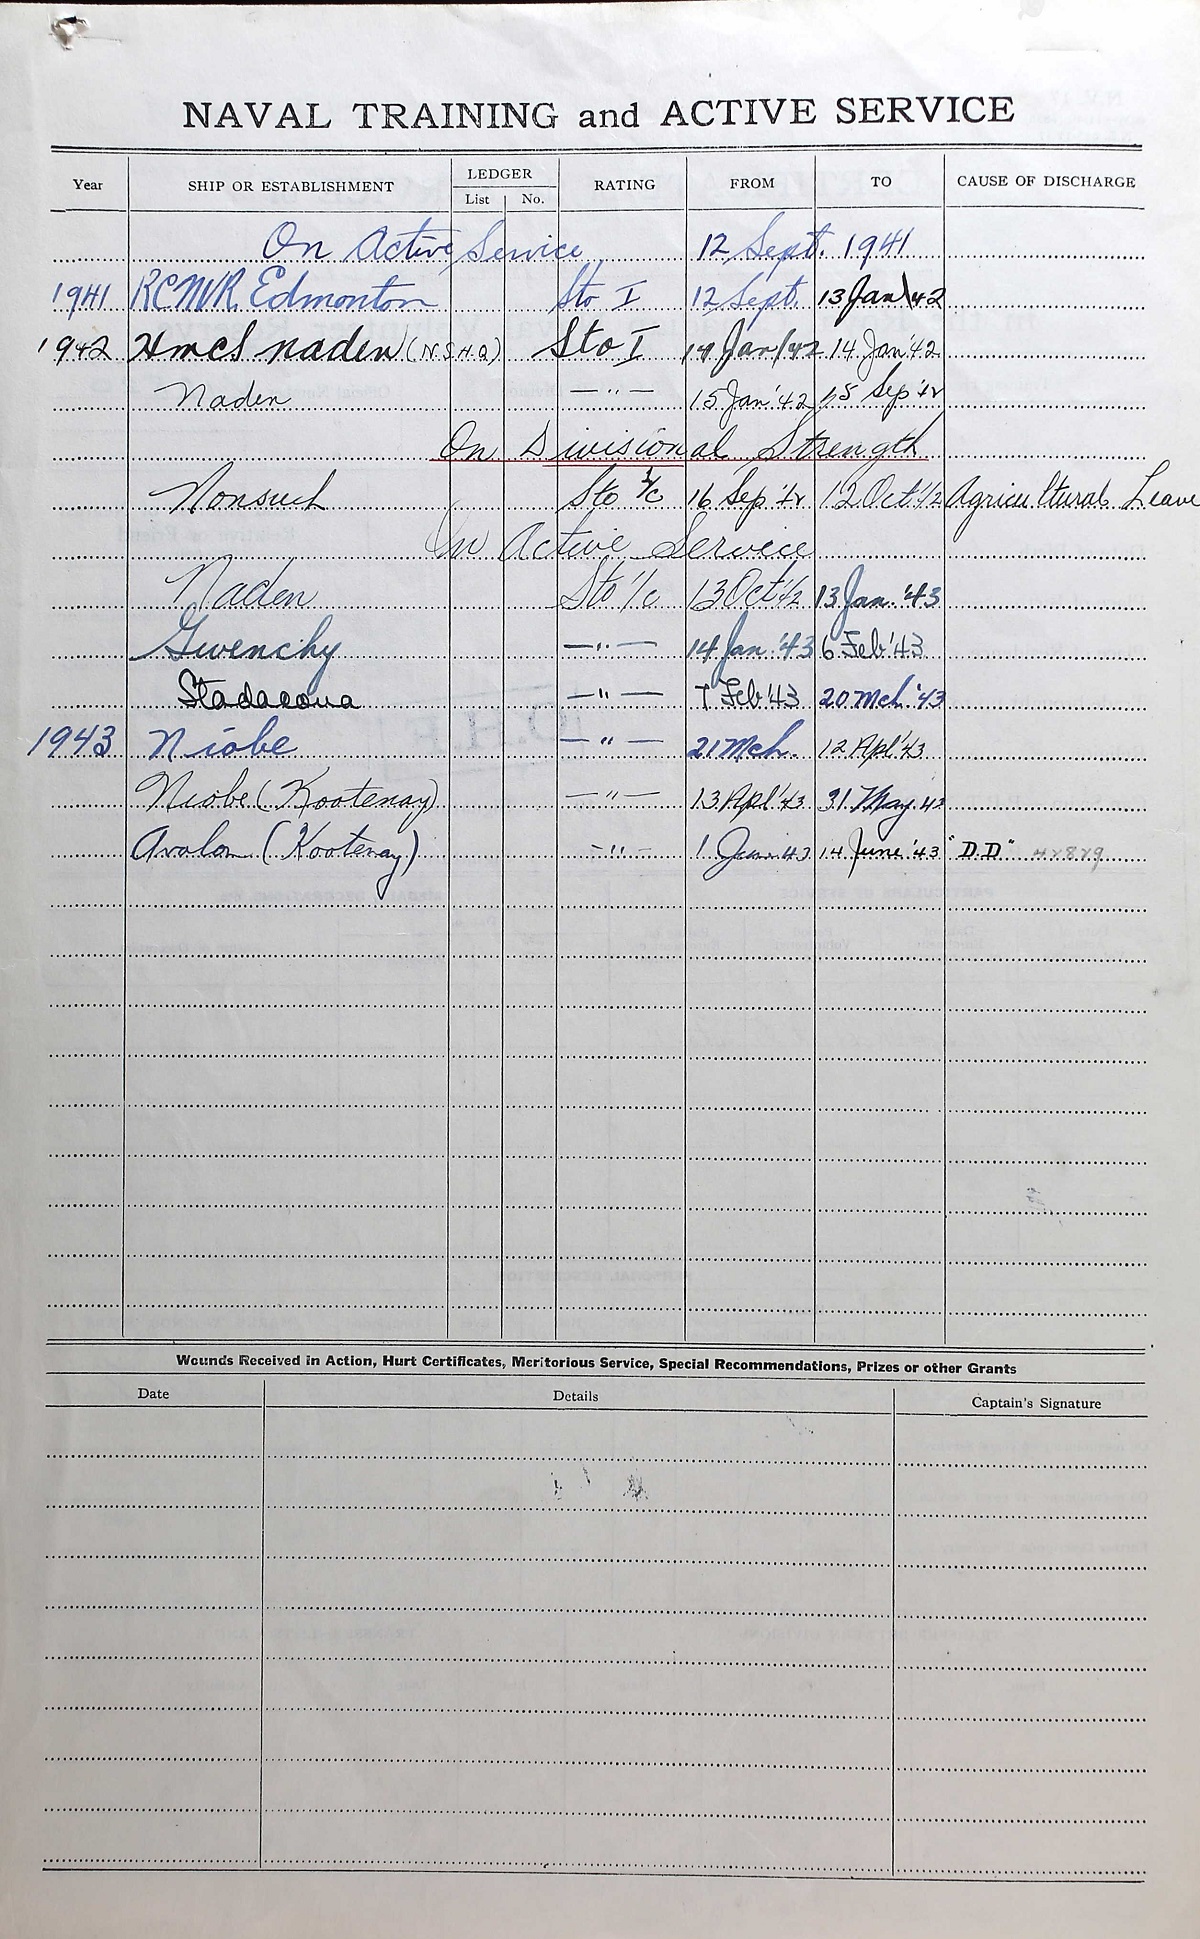 NAVAL TRAINING and ACTIVE SERVICE
Year SHIP OR ESTABLISHMENT LEDGER List No. RATING FROM TO CAUSE OF DISCHARGE
On Active Service 12 Sept. 1941
1941 RCNVR Edmonton Sto I 12 Sept. 13 Jan/42
1942 HMCS Naden (N.S.H.Q) Sto I 14 Jan/42 14 Jan '42
Naden —"— 15 Jan '42 15 Sep '42
On Divisional Strength
Nonsuch Sto 16 Sep '42 12 Oct '42 Agricultural Leave
On Active Service
Naden Sto 1/c 13 Oct '42 13 Jan. '43
Givenchy —"— 14 Jan '43 6 Feb '43
Stadacona —"— 7 Feb '43 20 Mch. '43
1943 Niobe —"— 21 Mch. 12 Apl '43
Niobe (Kootenay) —"— 13 Apl '43 31 May. 43
Avalon (Kootenay) -"- 1 Jun. 43 14 June '43 "D.D"
Wounds Received in Action, Hurt Certificates, Meritorious Service, Special Recommendations, Prizes or other Grants
Date Details Captain's Signature